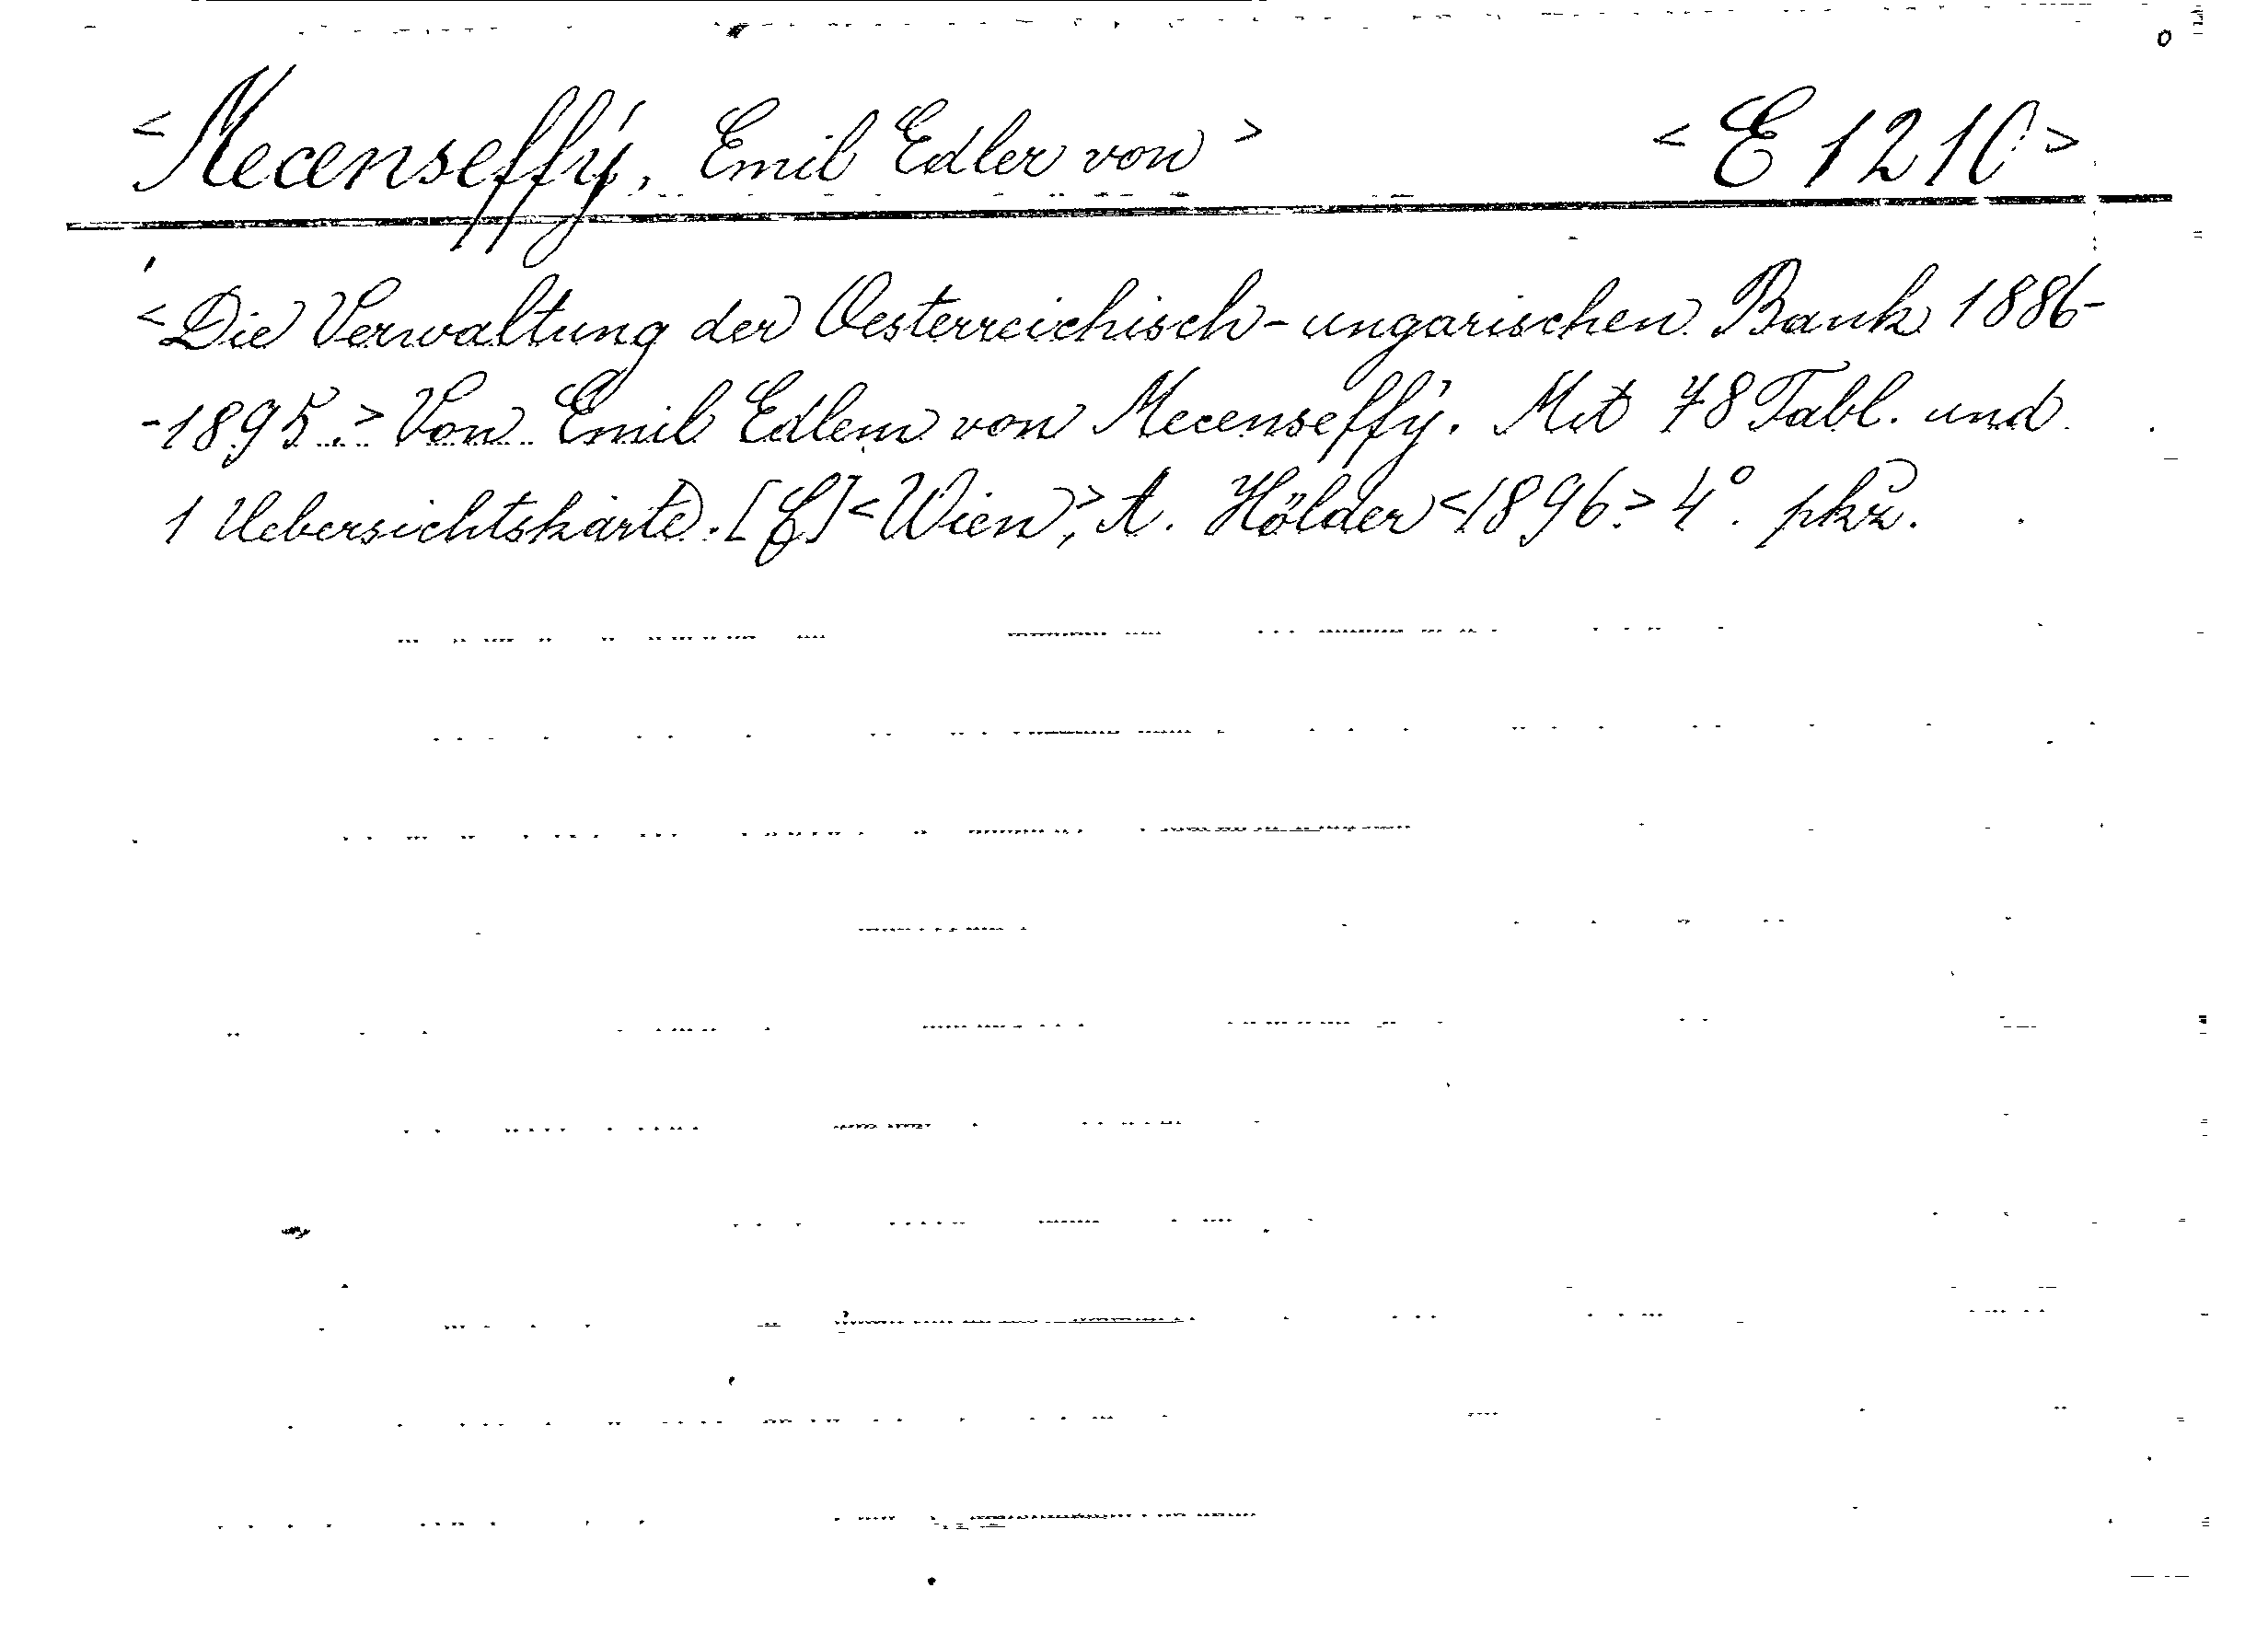 <Mecenseffy, Emil Edler von> <E 1210>
<Die Verwaltung der Oesterreichisch-ungarischen Bank 1886-
-1895.> Von Emil Edlem von Mecenseffy. Mit 78 Tabl. und
1 Uebersichtskarte. [ ] <Wien,> A. Hölder <1896.> 4°.